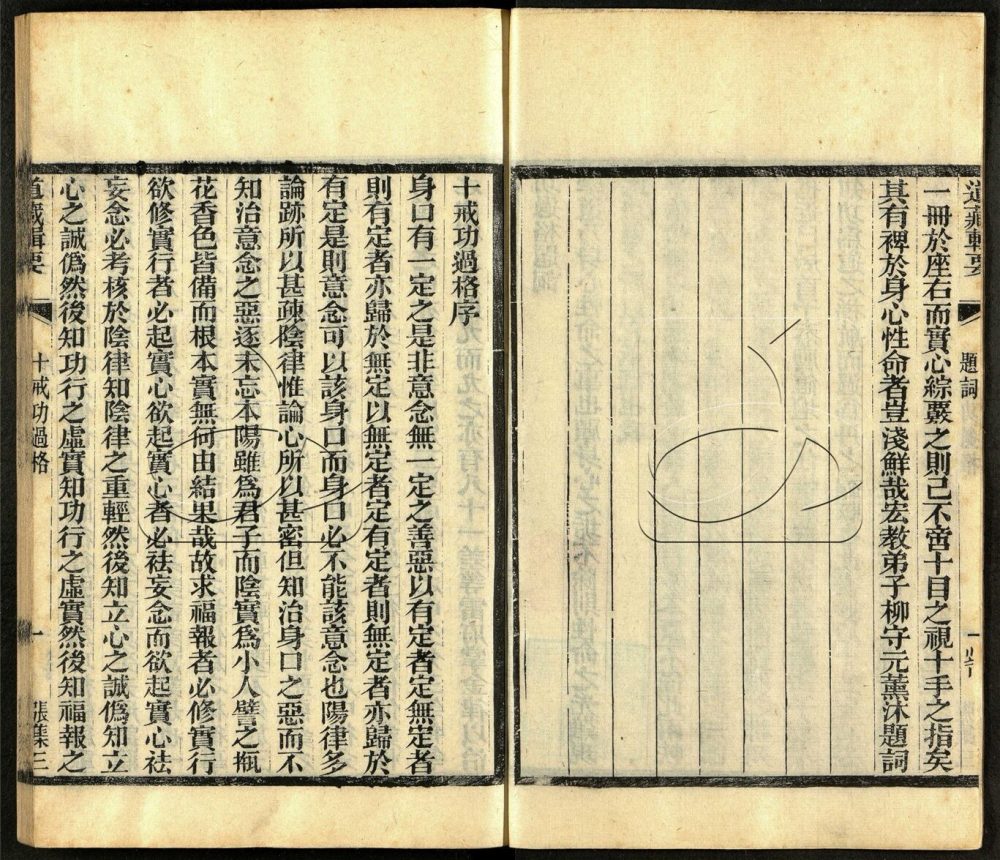 道藏輯要
題詞
一冊於座右而實心綜覈之則已不啻十目之視十手之指矣
其有裨於身心性命者豈淺鮮哉宏教弟子柳守元薰沐題詞
十戒功過格序
身口有一定之是非意念無一定之善惡以有定者定無定者
則有定者亦歸於無定以無定者定有定者則無定者亦歸於
有定是則意念可以該身口而身口必不能該意念也陽律多
論跡所以甚疎陰律惟論心所以甚密但知治身口之惡而不
知治意念之惡逐末忘本陽雖為君子而陰實為小人譬之瓶
花香色皆備而根本實無何由結果哉故求福報者必修實行
欲修實行者必起實心欲起實心者必袪妄念而欲起實心袪
妄念必考核於陰律知陰律之重輕然後知立心之誠僞知立
心之誠僞然後知功行之虛實知功行之虛實然後知福報之
道藏輯要
十戒功過格
一
張集三